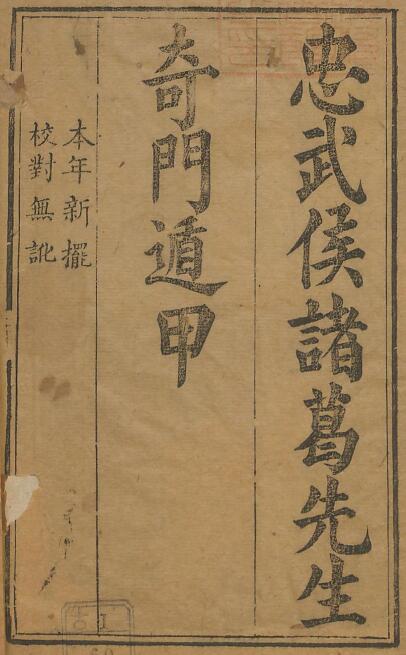 忠武侯諸葛先生
奇門遁甲
本年新擺
校對無訛